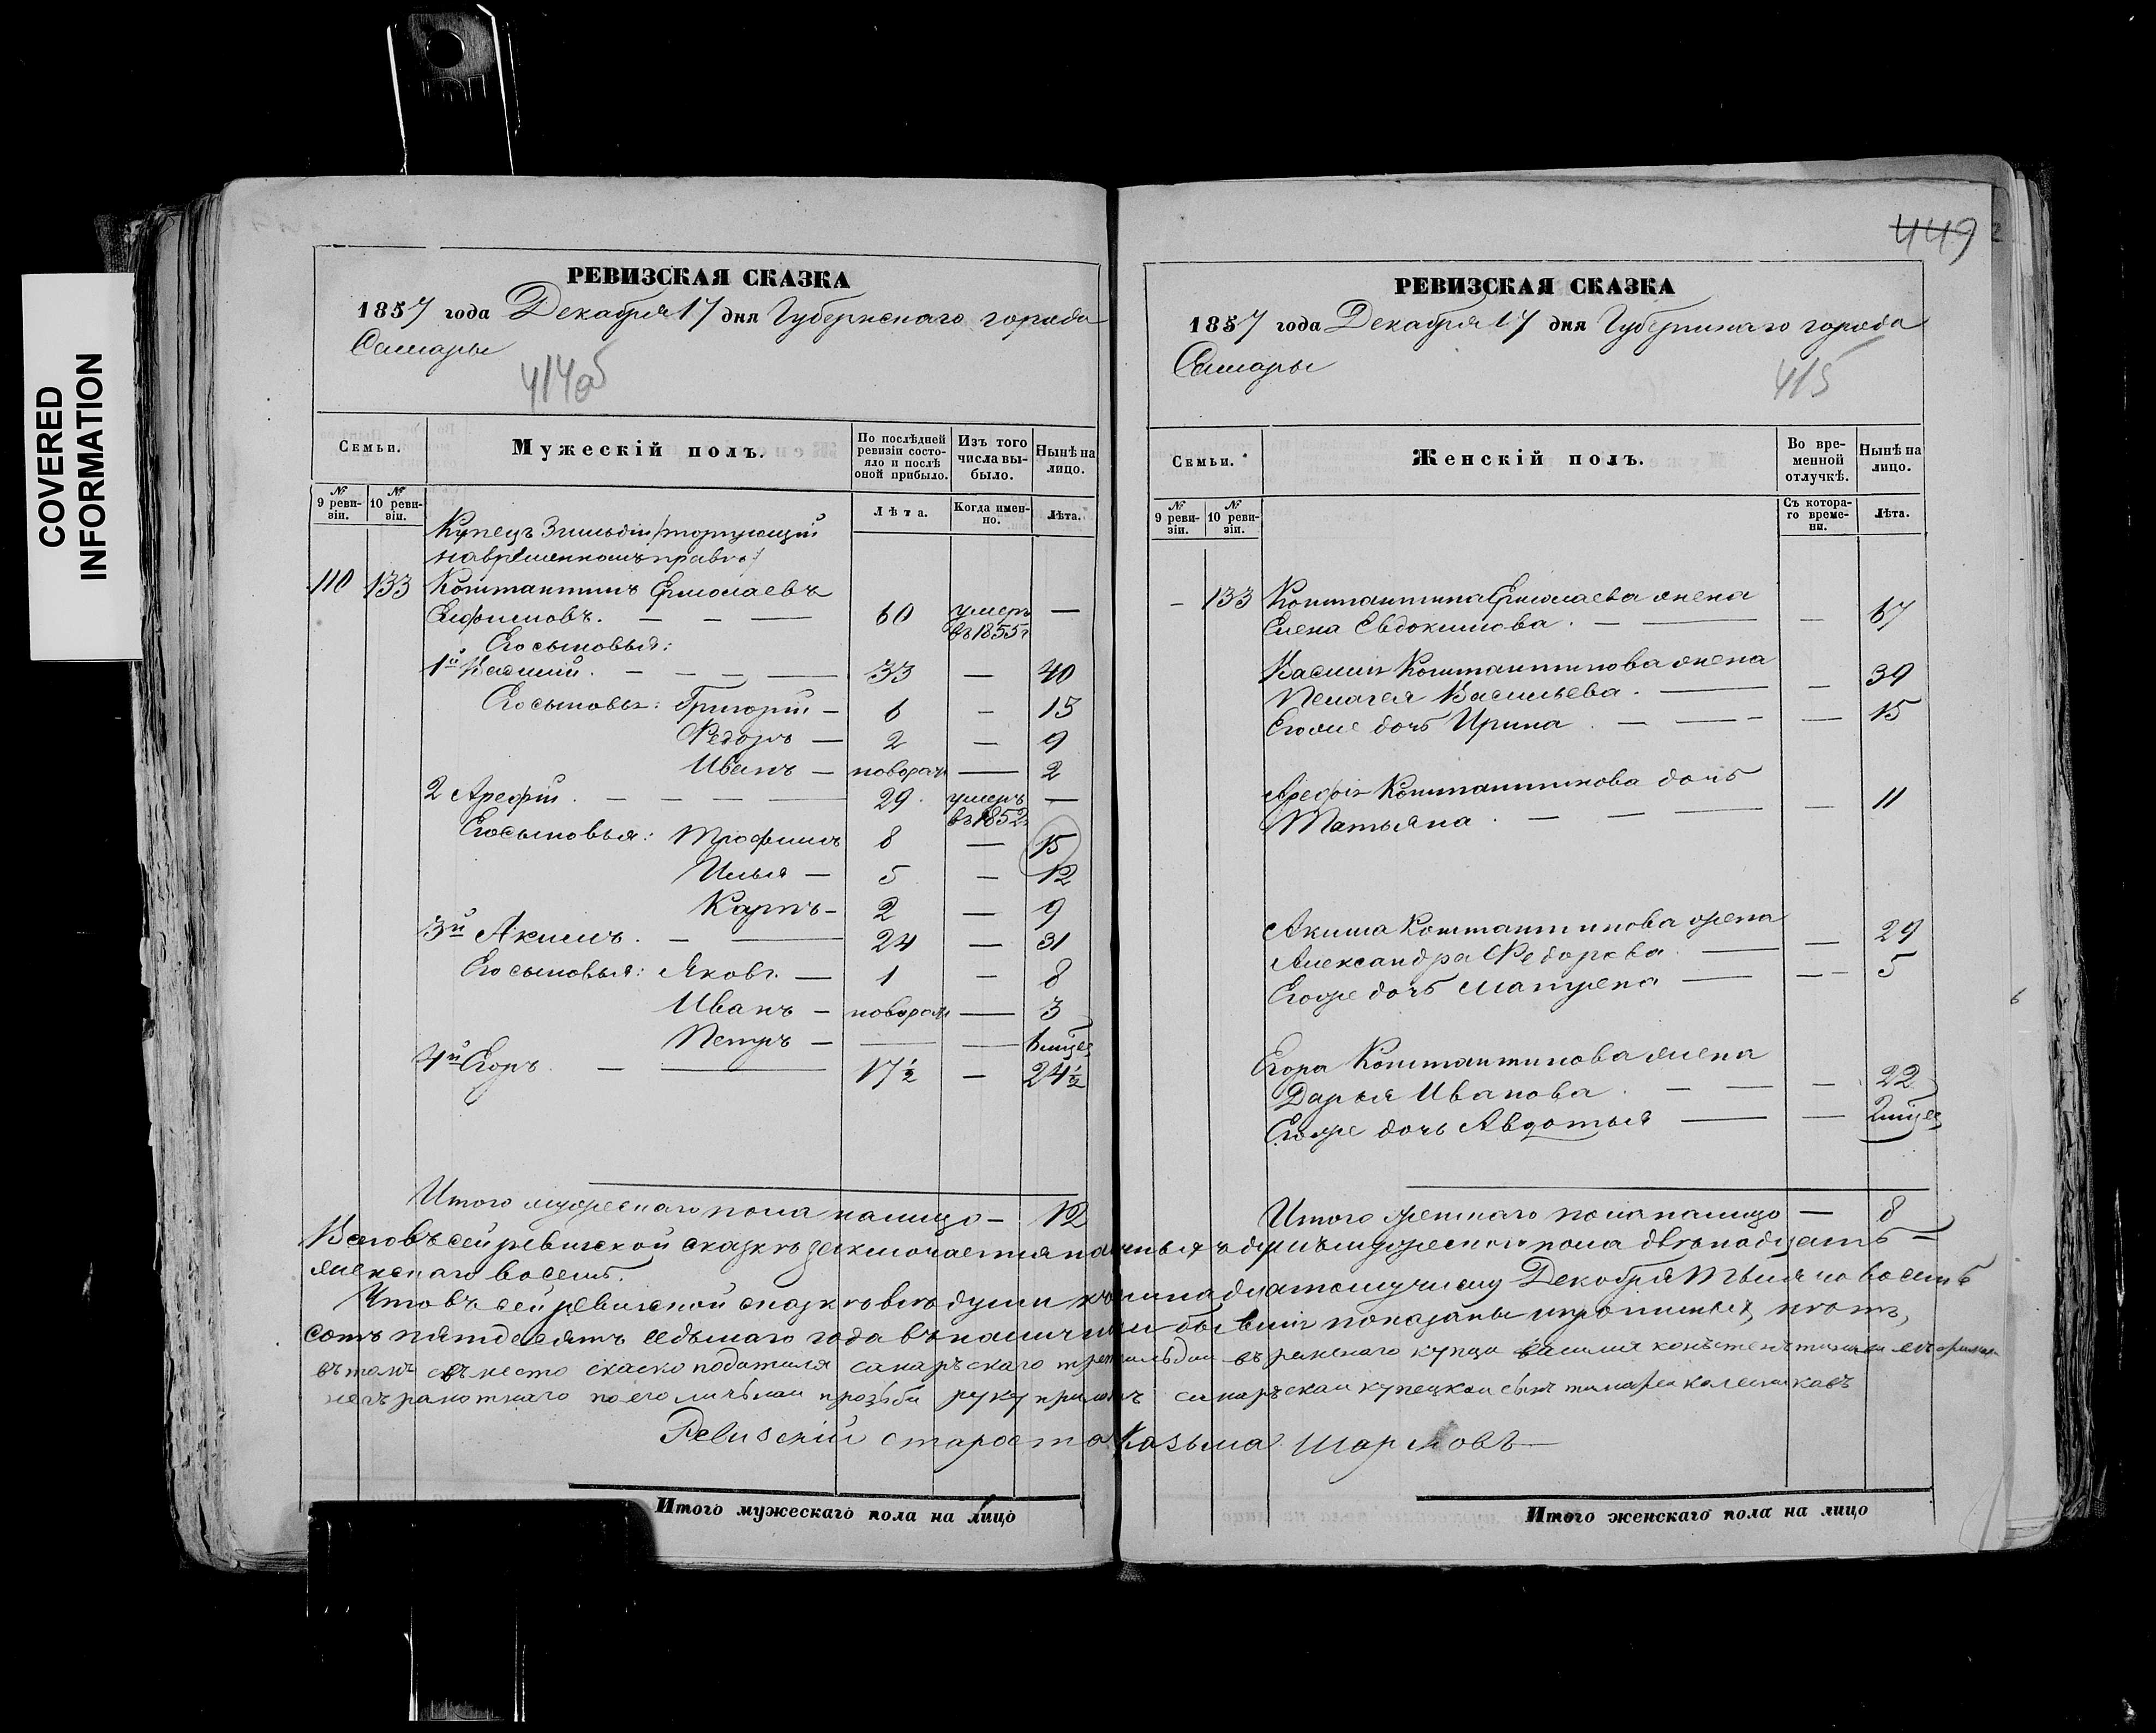 COVERED
INFORMATION
449
РЕВИЗСКАЯ СКАЗКА
1857 года Декабря 17 дня Губернскаго города
Самары
414об
Семьи.
Мужескій полъ.
По послѣдней ревизіи состояло и послѣ оной прибыло.
Изъ того числа выбыло.
Нынѣ на лицо.
№ 9 ревизіи.
№ 10 ревизіи.
Лѣта.
Когда именно.
Лѣта.
Купецъ 3 гильдіи /торгующій
на временномъ правѣ/
110 133 Константинъ Ермолаевъ
Ефимовъ. — — — 60 умеръ въ 1855г —
Его сыновья:
1й Василій. — — — 33 — 40
Его сыновья: Григорій — 6 — 15
Федоръ — 2 — 9
Иванъ — новорож — 2
2 Арефій. — — — 29 умеръ въ 1852г —
Его сыновья: Трофимъ 8 — 15
Илья — 5 — 12
Карпъ — 2 — 9
3й Акимъ. — — 24 — 31
Его сыновья: Яковъ — 1 — 8
Иванъ — новорож — 3
Петръ — — — 6 мцев
4й Егоръ. — — 17½ — 24½
Итого мужескаго пола налицо — 12
РЕВИЗСКАЯ СКАЗКА
1857 года Декабря 17 дня Губернскаго города
Самары
415
Семьи.
Женскій полъ.
Во временной отлучкѣ.
Нынѣ на лицо.
№ 9 ревизіи.
№ 10 ревизіи.
Съ котораго времени.
Лѣта.
— 133 Константина Ермолаева жена
Елена Евдокимова. — — — 67
Василія Константинова жена
Пелагея Васильева. — — 39
Его же дочь Ирина. — — — 15
Арефія Константинова дочь
Татьяна. — — — — 11
Акима Константинова жена
Александра Федорова. — — 29
Его же дочь Матрена — — 5
Егора Константинова жена
Дарья Иванова. — — — 22
Его же дочь Авдотья — — 2 мцев
Итого женскаго пола налицо — 8
Всего въ сей ревизской сказкѣ заключается наличныхъ душъ мужескаго пола двѣнадцать —
женскаго восемь.
Что въ сей ревизской сказкѣ всѣ души къ семнадцатому числу Декабря тысяча восемь
сотъ пятьдесятъ седьмаго года въ наличіи бывшія показаны и прописныхъ нѣтъ,
въ томъ вместо скаско подателя самаръскаго третей гильдии въременаго купца василия констенътинова ефимова
негърамотнаго по его личьнаи прозьби руку приложилъ самаръскаи купецкаи сынъ тимофеи колесниковъ
Ревизскій староста Козьма Шарловъ
Итого мужескаго пола на лицо
Итого женскаго пола на лицо